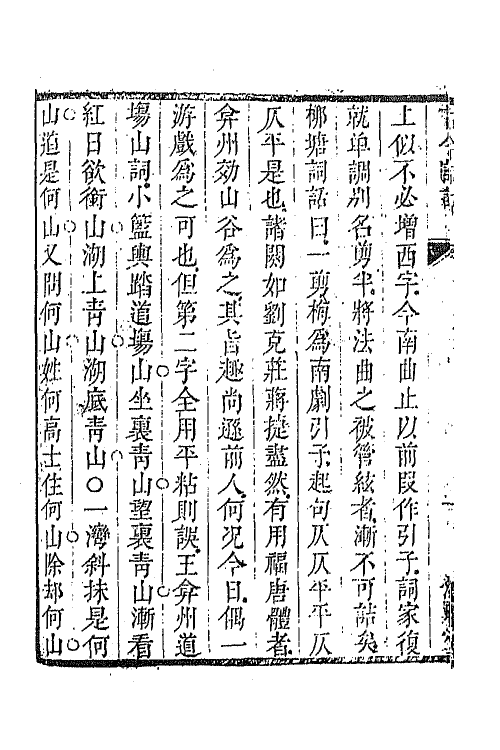 上似不必增西字今南曲止以前叚作引子詞家復
就单調别名剪半將法曲之被管絃者漸不可詰矣
柳塘詞話曰一剪梅爲南劇引子起句仄仄平平仄
仄平是也諸闋如劉克莊蔣捷盡然有用福唐體者
弇州効山谷爲之其旨趣尚遜前人何况今日偶一
游戲爲之可也但第二字全用平粘則誤王弇州道
塲山詞小籃輿踏道塲山坐裏青山望裏青山漸看
紅日欲銜山湖上青山湖底青山〇一灣斜抹是何
山道是何山又問何山姓何高士住何山除却何山